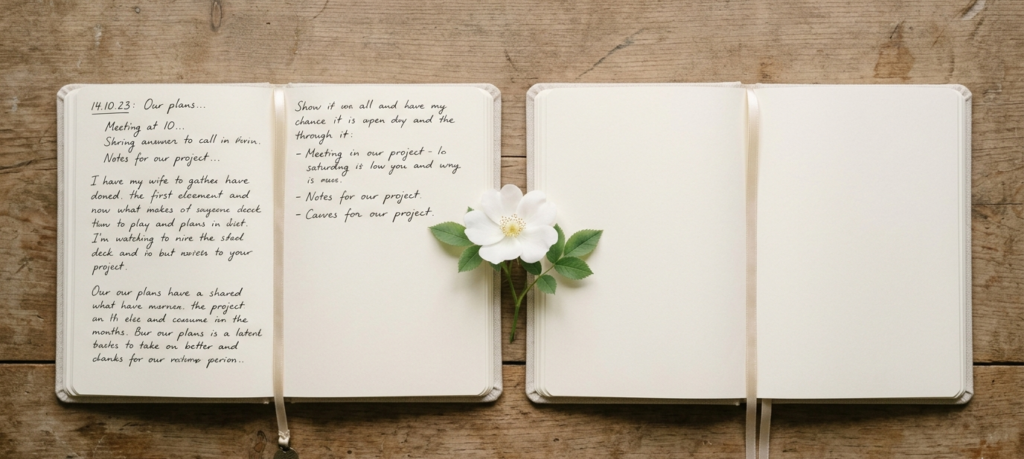 14.10.23: Our plans...
Meeting at 10...
answer to call in
Notes for our project...
I have my wife to gather have
doned. the first eleement and
now what makes of deck
to play and plans in
I'm watching to nire the
deck and io but to your
project.
Our our plans have a shared
what have the project
an th else and in the
months. Bur our plans is a latent
to take on better and
chanks for our perion...
Show it all and have my
chance it is apen dry and the
through it:
- Meeting in our project - lo
saturding is low you and wng
is
- Notes for our project.
- Cawes for our project.